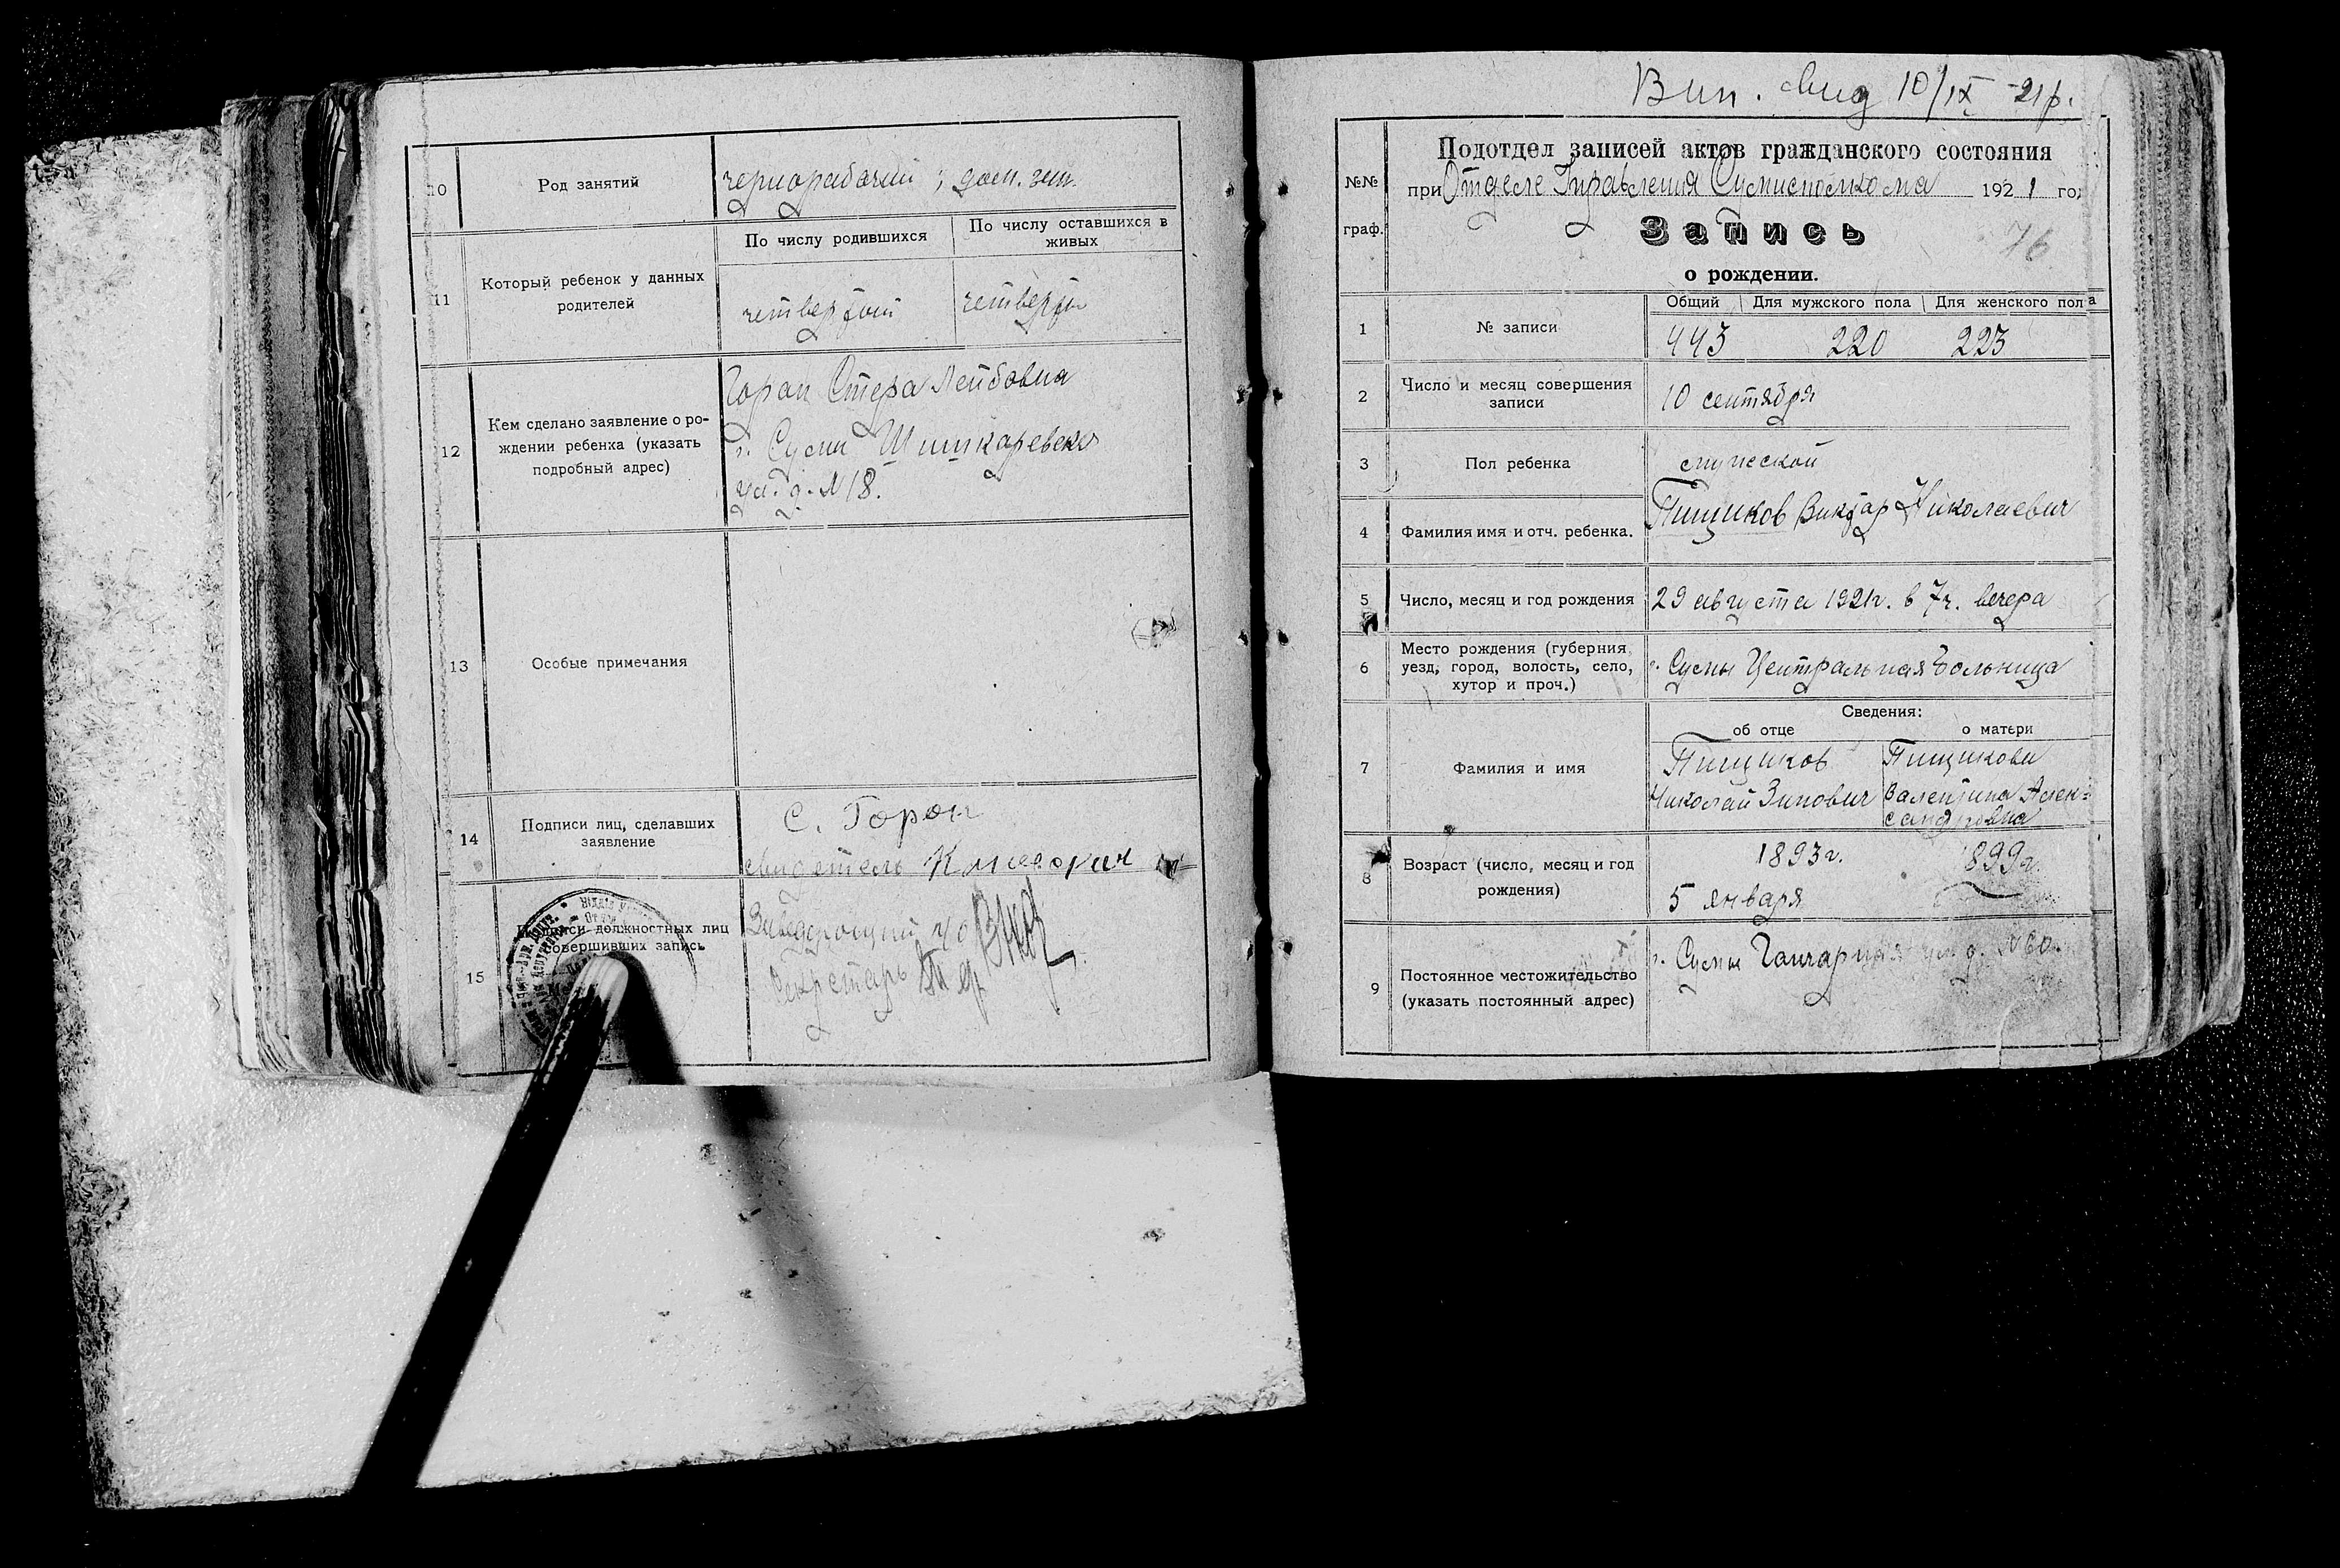 10 Род занятий чернорабочий; дом. зан.
11 Который ребенок у данных родителей
По числу родившихся
По числу оставшихся в живых
четвертый
четверты
12 Кем сделано заявление о рождении ребенка (указать подробный адрес)
Горон Стера Лейбовна
г. Сумы Шишкаревск
ул. д. № 18.
13 Особые примечания
14 Подписи лиц, сделавших заявление
С. Горон
свидетель
15 Подписи должностных лиц совершивших запись
Заведующий
Секретарь
Вип. свид 10/IX -21р.
№№ граф.
Подотдел записей актов гражданского состояния
при Отделе Управления Сумисполкома 1921 год
Запись
76
о рождении.
Общий Для мужского пола Для женского пола
1 № записи 443 220 223
2 Число и месяц совершения записи 10 сентября
3 Пол ребенка мужеской
4 Фамилия имя и отч. ребенка. Пищиков Виктор Николаевич
5 Число, месяц и год рождения 29 августа 1921г. в 7ч. вечера
6 Место рождения (губерния, уезд, город, волость, село, хутор и проч.) г. Сумы Центральная больница
Сведения:
об отце о матери
7 Фамилия и имя
Пищиков Пищикова
Николай Зинович Валентина Алек-
сандровна
8 Возраст (число, месяц и год рождения)
1893г. 1899г.
5 января
9 Постоянное местожительство (указать постоянный адрес)
г. Сумы Гончарная ул. д. № 60.